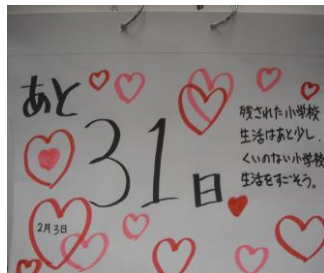 あと
31日
残された小学校
生活はあと少し、
くいのない小学校
生活をすごそう。
2月3日